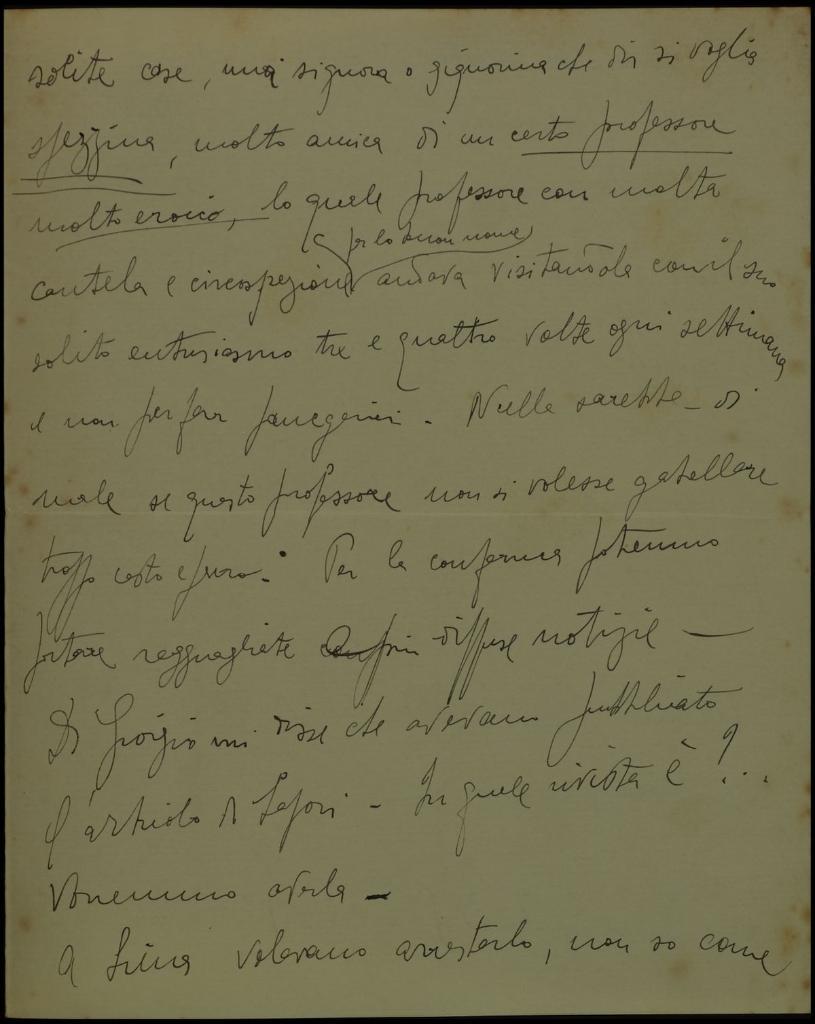 solite cose, una signora o signorina che dir si voglia
spezzina, molto amica di un certo professore
molto eroico, lo quale professore con molta
(per lo buon nome)
cautela e circospezione andava visitandola con il suo
solito entusiasmo tre e quattro volte ogni settimana
e non per far panegirici. Nulla sarebbe di
male se questo professore non si volesse gabellare
troppo casto e puro. Per la conferma potremmo
portare ragguagliate diffuse notizie —
Di Giorgio mi disse che avevano pubblicato
l'articolo di - In quale rivista è?..
Vorremmo averla -
A volevano arrestarlo, non so come